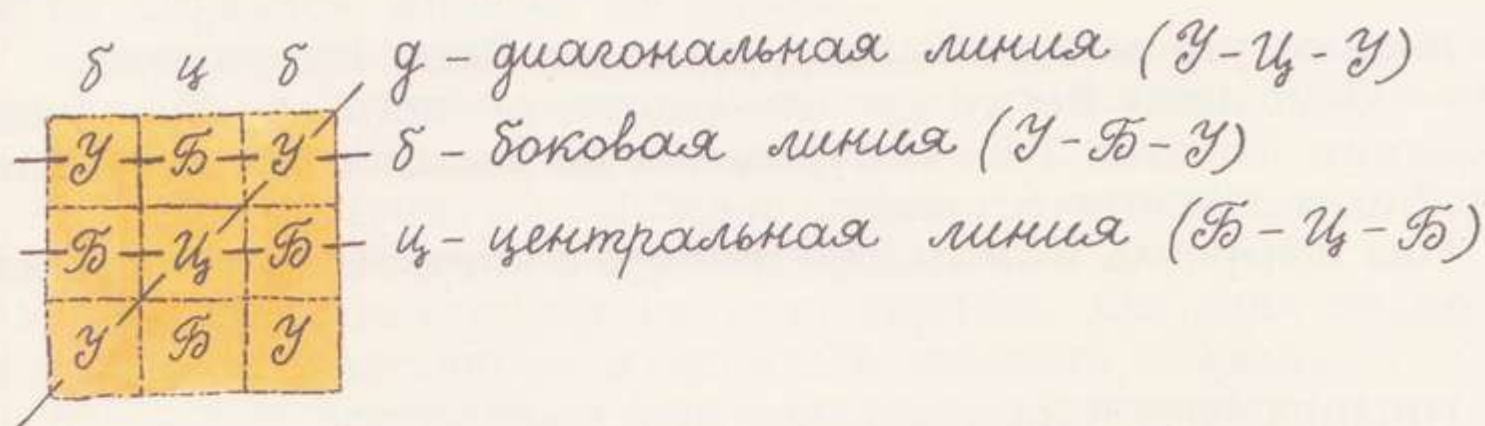 б ц б д - диагональная линия (У-Ц-У)
У Б У б - боковая линия (У-Б-У)
Б Ц Б ц - центральная линия (Б-Ц-Б)
У Б У